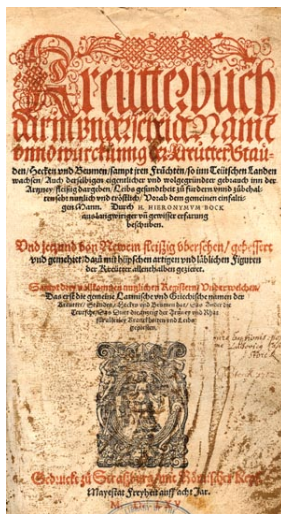 Kreutterbuch
darin underscheid Namē
vnnd würckung der Kreütter Stau-
den/Hecken vnnd Beumen/sampt jren Früchten/so inn Teütschen Landen
wachsen/Auch derselbigen eigentlicher vnd wolgegründter gebrauch inn der
Artzney/fleissig dargeben/Leibs gesundtheit zů fürdern vnnd zůbehal-
ten seht nutzlich vnd tröstlich/Vorab dem gemeinen einfalti-
gen Mann. Durch H. HIERONYMVM BOCK
auß langwiriger vñ gewisser erfarung
beschriben.
Vnd jetzund von Newem fleißig übersehen/gebessert
vnd gemehret/Dazů mit hüpschen artigen vnd lüblichen Figuren
der Kreütter allenthalben gezieret.
Sampt drey vollkomnen nutzlichen Registern/Vnder welchen/
Das erst die gemeine Latinische vnd Griechische namen der
Kreütter/Stauden/Hecken vnd Beumen hat/Das Ander die
Teutsche/Das Dritt die Artzney vnd Rhat
für allerley Kranckheiten vnd Leibs
gepresten.
Gedruckt zů Straßburg/mit Römischer Key.
Mayestat Freyheit auff acht Jar.
M. D. LXV